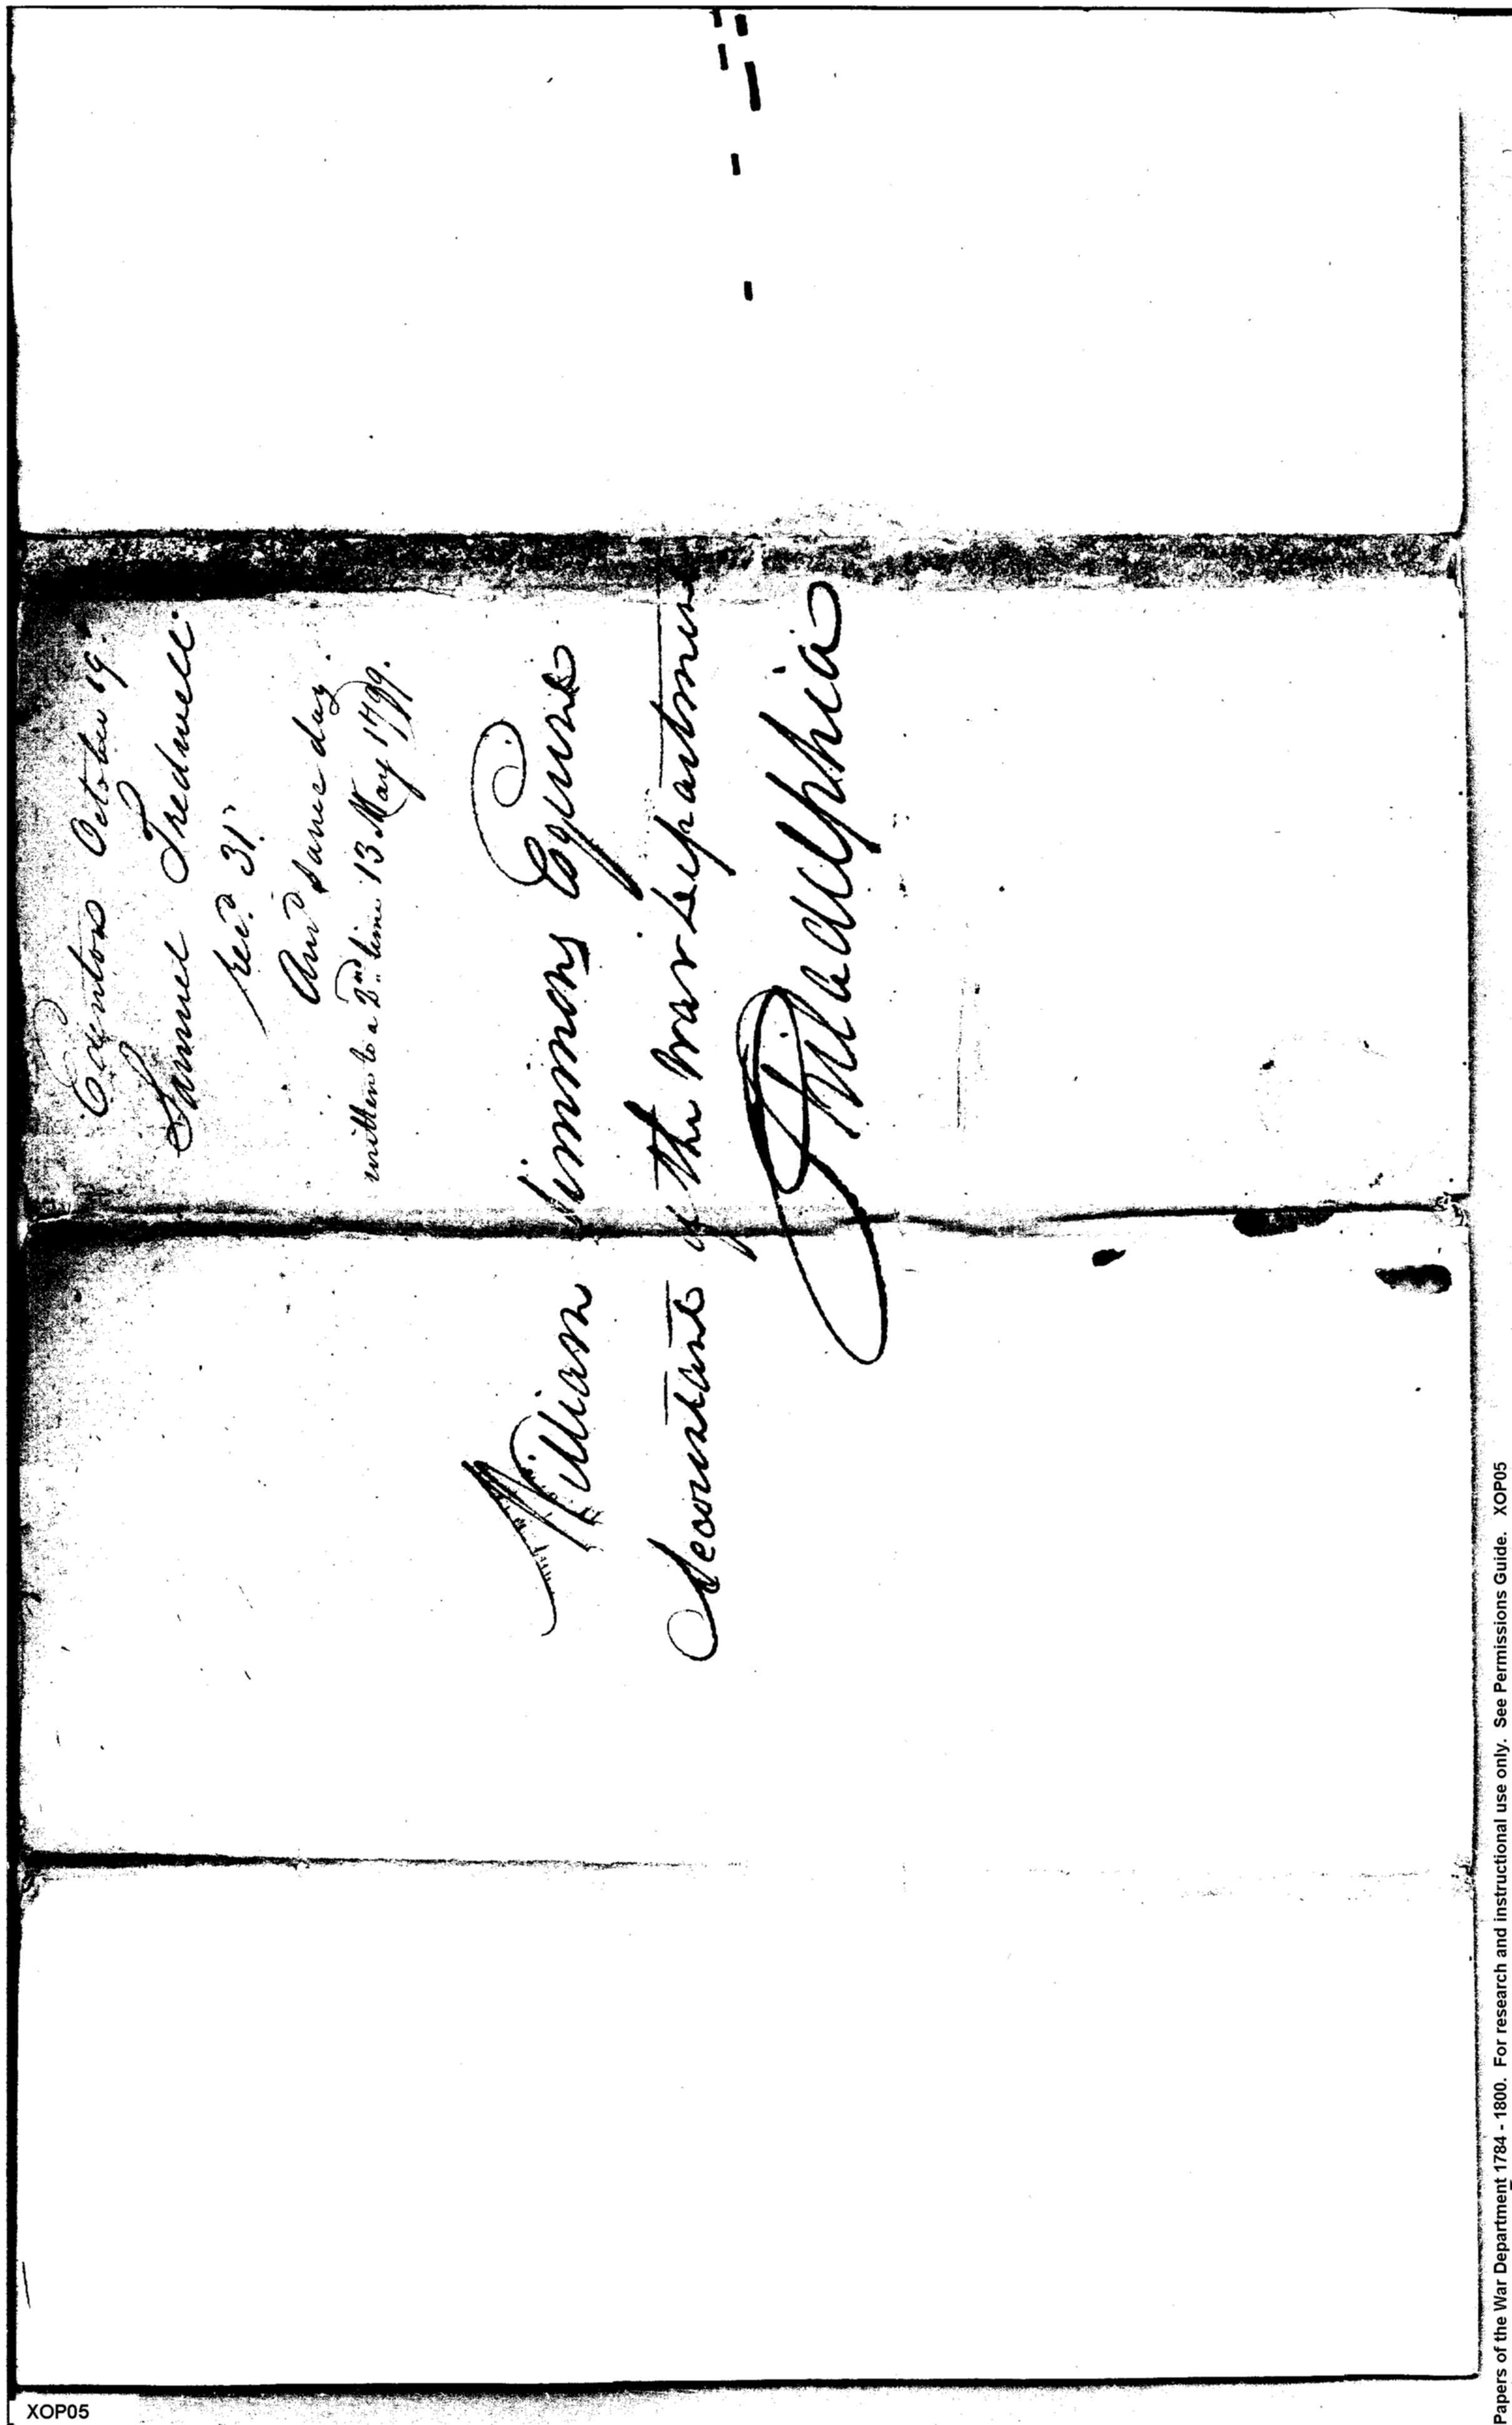 Edenton October 19.
Samuel Tredwell.
rec.d 31.
And same day.
written to a 2nd. time 13 May 1799.
William Simmons Esquire
Accountant of the War department
Philadelphia
XOP05
Papers of the War Department 1784 - 1800. For research and instructional use only. See Permissions Guide. XOP05